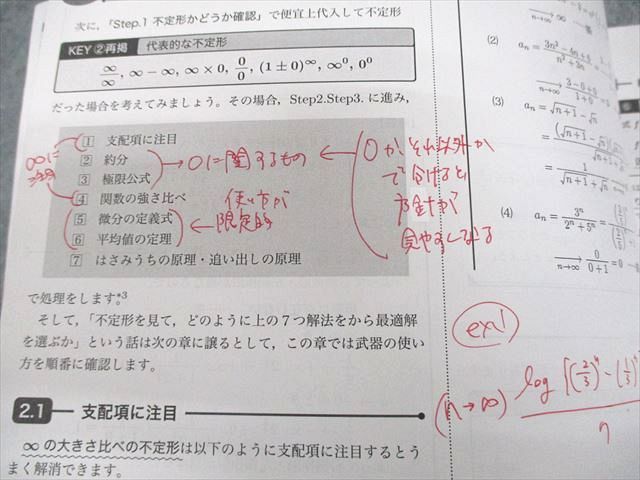 次に,「Step.1 不定形かどうか確認」で便宜上代入して不定形
KEY ②再掲 代表的な不定形
∞/∞, ∞ − ∞, ∞ × 0, 0/0, (1 ± 0)^∞, ∞^0, 0^0
だった場合を考えてみましょう。その場合, Step2.Step3. に進み,
1 支配項に注目
2 約分
3 極限公式
4 関数の強さ比べ
5 微分の定義式
6 平均値の定理
7 はさみうちの原理・追い出しの原理
→ 0に関するもの
使い方が
限定的
0か、それ以外か
で分けると
方針が
見やすくなる
で処理をします。*3
そして,「不定形を見て, どのように上の7つ解法をから最適解
を選ぶか」という話は次の章に譲るとして, この章では武器の使い
方を順番に確認します。
2.1 支配項に注目
∞ の大きさ比べの不定形は以下のように支配項に注目するとう
まく解消できます。
(2) a_n = 3n²−4n+5/n²+3n
→ n→∞ 3−0+0/1+0
(3) a_n = √n+1 − √n
= (√n+1 − √n)
= 1/√n+1 + √n
(4) a_n = 3^n/2^n + 5^n
→ n→∞ 0/0+1 = 0
ex!
(n→∞) log [(2/3)^n − (1/3)^n
n